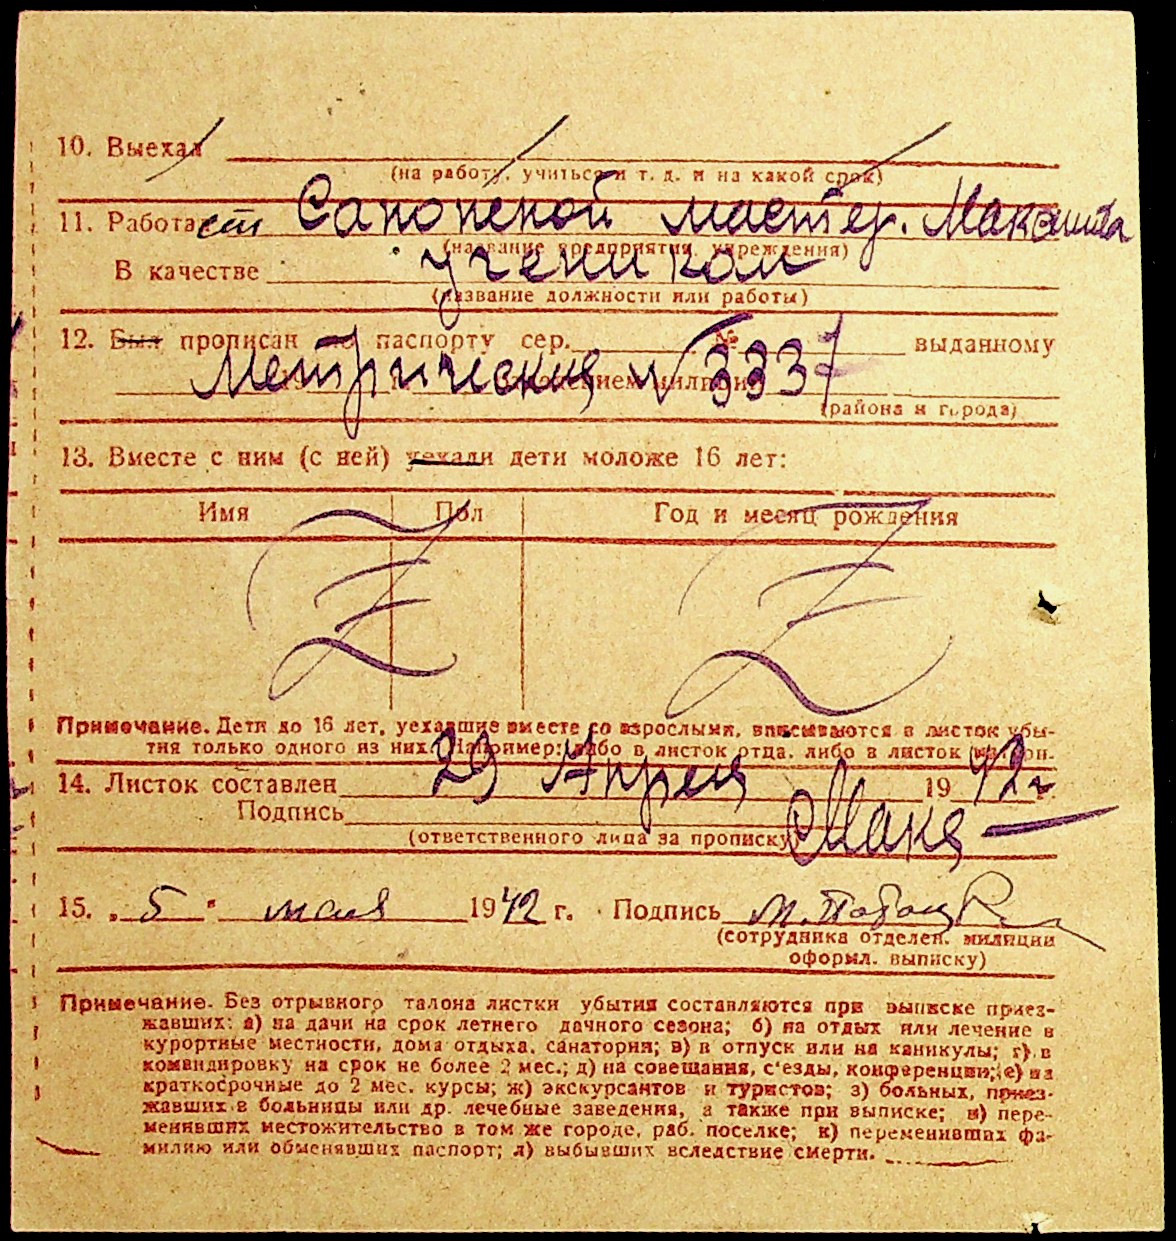 10. Выехал
(на работу, учиться и т. д. и на какой срок)
11. Работает Сапожной мастер. Макашева
(название предприятия, учреждения)
В качестве учеником
(название должности или работы)
12. Был прописан по паспорту сер. № выданному
Метрический № 3337
отделением милиции
(района и города)
13. Вместе с ним (с ней) уехали дети моложе 16 лет:
Имя Пол Год и месяц рождения
Z Z
Примечание. Дети до 16 лет, уехавшие вместе со взрослыми, вписываются в листок убы-
тия только одного из них. Например: либо в листок отца, либо в листок матери.
14. Листок составлен 29 Апреля 1942 г.
Подпись Мака
(ответственного лица за прописку)
15. „ 5 " мая 1942 г. Подпись М.
(сотрудника отделен. милиции
оформл. выписку)
Примечание. Без отрывного талона листки убытия составляются при выписке приез-
жавших: а) на дачи на срок летнего дачного сезона; б) на отдых или лечение в
курортные местности, дома отдыха, санатории; в) в отпуск или на каникулы; г) в
командировку на срок не более 2 мес.; д) на совещания, с'езды, конференции; е) на
краткосрочные до 2 мес. курсы; ж) экскурсантов и туристов; з) больных, приез-
жавших в больницы или др. лечебные заведения, а также при выписке; и) пере-
менивших местожительство в том же городе, раб. поселке; к) переменивших фа-
милию или обменявших паспорт; л) выбывших вследствие смерти.